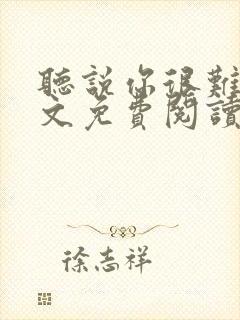 聽說你很難
文免費閱讀
徐志祥